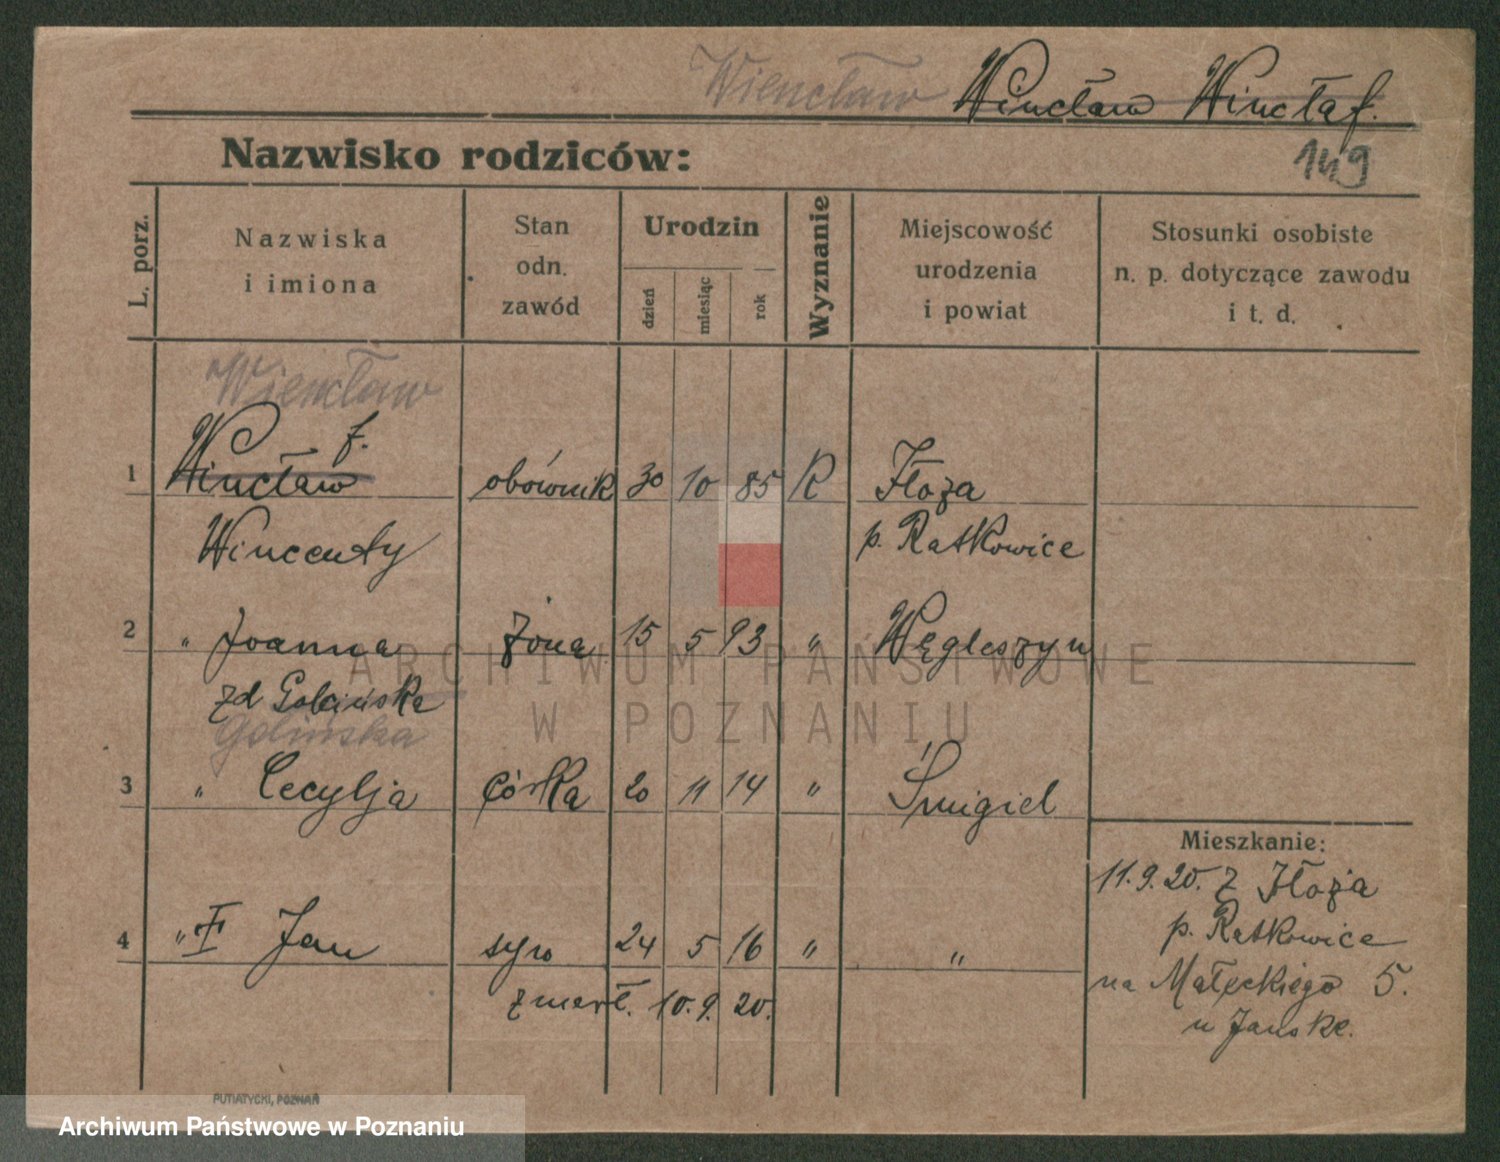 Wiencław Wincław Winctaf.
Nazwisko rodziców:
149
L. porz.
Nazwiska
i imiona
Stan
odn.
zawód
Urodzin
dzień
miesiąc
rok
Wyznanie
Miejscowość
urodzenia
i powiat
Stosunki osobiste
n. p. dotyczące zawodu
i t. d.
Wiencław
f.
1 Wincław obównik 30 10 85 R Iłoza
Wincenty p. Ratkowice
2 " Joanna żona 15 5 93 " Węgleszyn
zd Golcińska
Golińska
3 " Cecylja córka 20 11 14 " Śmigiel
Mieszkanie:
11.9.20. z Iłoża
p. Ratkowice
4 " Jan syn 24 5 16 " "
na Małeckiego 5.
zmarł. 10. 9. 20.
u Janske.
PUTIATYCKI, POZNAŃ
ARCHIWUM PAŃSTWOWE
W POZNANIU
Archiwum Państwowe w Poznaniu